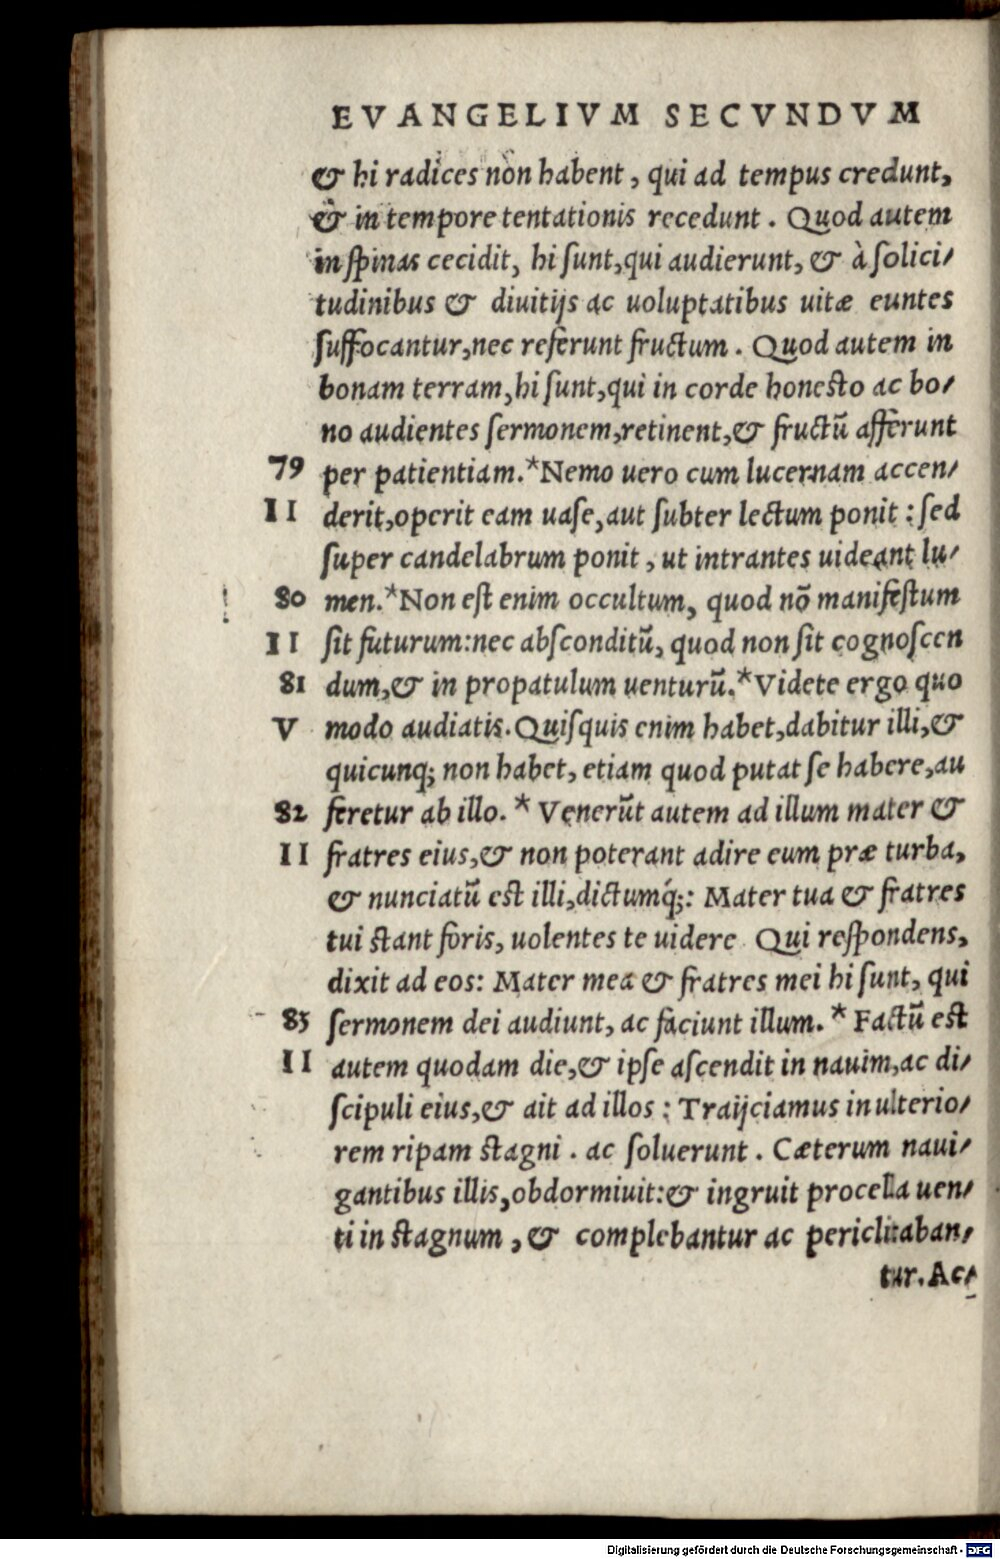 EVANGELIVM SECVNDVM
& hi radices non habent, qui ad tempus credunt,
& in tempore tentationis recedunt. Quod autem
in spinas cecidit, hi sunt, qui audierunt, & à solici/
tudinibus & diuitijs ac uoluptatibus uitæ euntes
suffocantur, nec referunt fructum. Quod autem in
bonam terram, hi sunt, qui in corde honesto ac bo/
no audientes sermonem, retinent, & fructū afferunt
79 per patientiam.*Nemo uero cum lucernam accen/
II derit, operit eam uase, aut subter lectum ponit: sed
super candelabrum ponit, ut intrantes uideant lu/
80 men.*Non est enim occultum, quod nō manifestum
II sit futurum: nec absconditū, quod non sit cognoscen
81 dum, & in propatulum uenturū.*Videte ergo quo
V modo audiatis. Quisquis enim habet, dabitur illi, &
quicunq; non habet, etiam quod putat se habere, au
82 feretur ab illo. * Venerūt autem ad illum mater &
II fratres eius, & non poterant adire eum præ turba,
& nunciatū est illi, dictumq́;: Mater tua & fratres
tui stant foris, uolentes te uidere Qui respondens,
dixit ad eos: Mater mea & fratres mei hi sunt, qui
83 sermonem dei audiunt, ac faciunt illum. * Factū est
II autem quodam die, & ipse ascendit in nauim, ac di/
scipuli eius, & ait ad illos: Traijciamus in ulterio/
rem ripam stagni. ac soluerunt. Cæterum naui/
gantibus illis, obdormiuit: & ingruit procella uen/
ti in stagnum, & complebantur ac periclitaban/
tur. Ac/
Digitalisierung gefördert durch die Deutsche Forschungsgemeinschaft - DFG